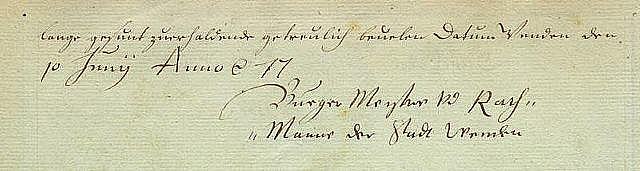 lange gesunt zuerhaldende getreulich beuelen Datum Venden den
10 Junij Anno C 17
Burger Meister vnd Rath„
„Manne der Stadt Wenden